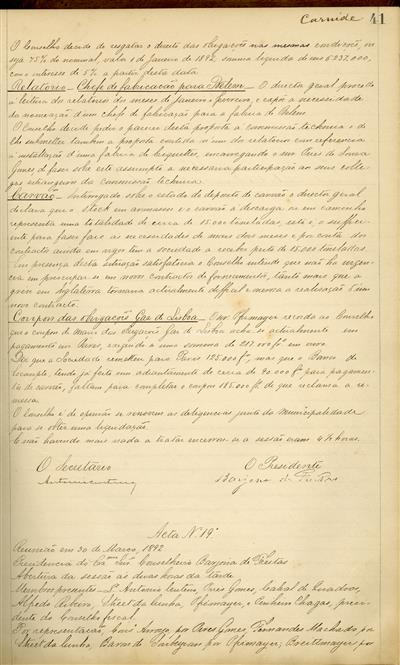 Carnide 41
O Conselho decide de resgatar o direito das obrigações nas mesmas condições, ou
seja 75% do nominal, valor 1 de Janeiro de 1892, somma liquida de reis 6.237.000,
com interesse de 5% a partir desta data.
Relatorio — Chefe de fabricação para Belem — O director geral procede
á leitura dos relatorios dos mezes de Janeiro e Fevereiro, e expõe a necessidade
da nomeação d'um chefe de fabricação para a fabrica de Belem.
O Conselho decide pedir o parecer desta proposta á commissão technica e de
lhe submetter tambem a proposta contida n'um dos relatorios com referencia
á installação d'uma fabrica de briquettes, encarregando o snr. Peres de Sousa
Gomes de fazer sobre este assumpto a necessaria participação aos seus colle-
gas estrangeiros da Commissão technica.
Carvão — Interrogado sobre o estado do deposito de carvão o director geral
declara que o stock em armazem e o carvão a descarga ou em caminho
representa uma totalidade de cerca de 15.000 toneladas, isto é, o suffici-
ente para fazer face ás necessidades de mais dois mezes e por conta dos
contractos ainda em vigor tem a sociedade a receber perto de 15.000 toneladas.
Em presença desta situação satisfatoria o Conselho entende que não ha urgen-
cia em preoccupar-se em novo contracto de fornecimento, tanto mais que a
greve em Inglaterra tornaria actualmente difficil e morosa a realisação d'um
novo contracto.
Coupon das obrigações Gaz de Lisboa — O snr. Ofenmayer recorda ao Conselho
que o coupon de Março das obrigações Gaz de Lisboa acha-se actualmente em
pagamento em Paris, exigindo a uma somma de 217.000 fs em ouro.
Diz que a Sociedade remetteu para Paris 125.000 fs, mas que o Banco de
Escompte, tendo já feito um adiantamento de cerca de 90.000 fs para pagamen-
to de carvão, faltam para completar o coupon 185.000 fs de que reclama a re-
messa.
O Conselho é de opinião se renovem as diligencias junto da Municipalidade
para se obter uma liquidação.
E não havendo mais nada a tratar encerrou-se a sessão eram 4½ horas.
O Secretario
O Presidente
Barjona de Freitas
Acta Nº 19
Reunião em 30 de Março, 1892
Presidencia do Exmo Snr Conselheiro Barjona de Freitas
Abertura da sessão ás duas horas da tarde
Membros presentes — Antonio Centeno, Peres Gomes,
Alfredo Ribeiro, Street da Cunha, Ofenmayer, e Pinheiro Chagas, presi-
dente do Conselho fiscal.
Por representação, Luiz Arroyo por Peres Gomes, Fernandes Machado por
Street da Cunha, Barros de por Ofenmayer,